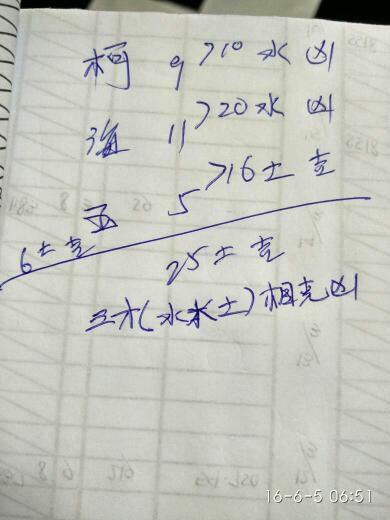 柯 9 >10 水 凶
海 11 >20 水 凶
>16 土 吉
玉 5
6 土 吉
25 土 吉
三才(水水土)相克凶
16-6-5 06:51